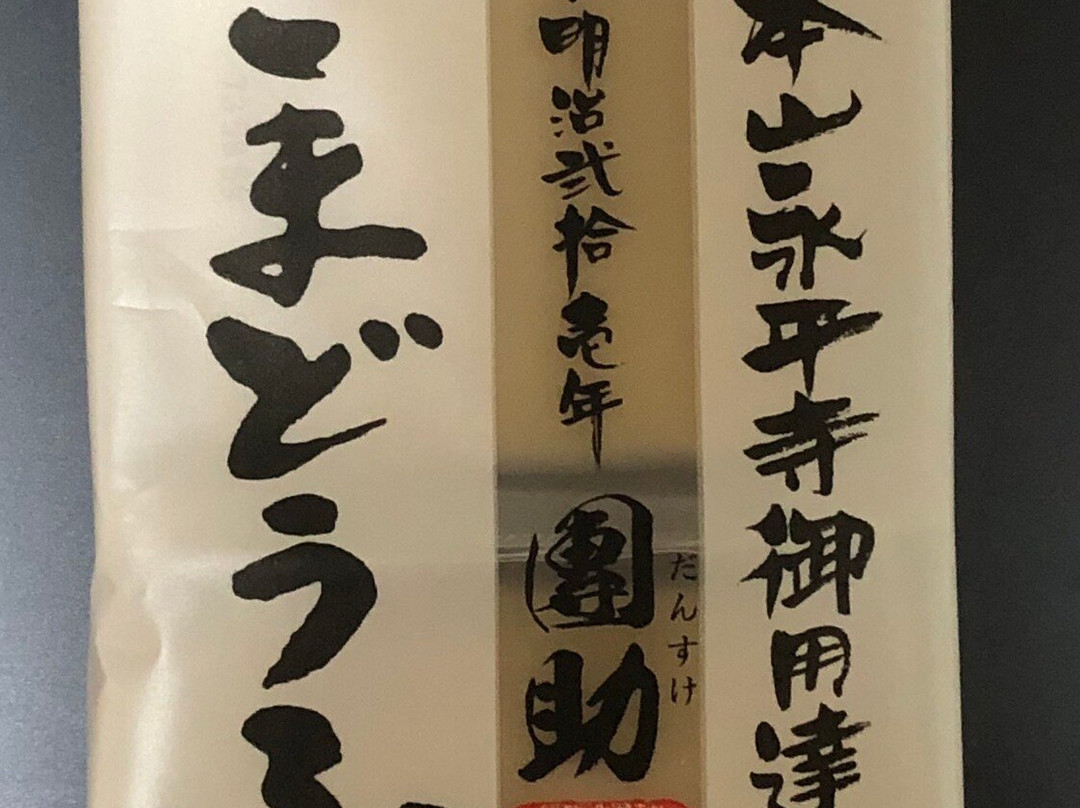 本山永平寺御用達
明治弐拾壱年
團助
だんすけ
ごまどうふ